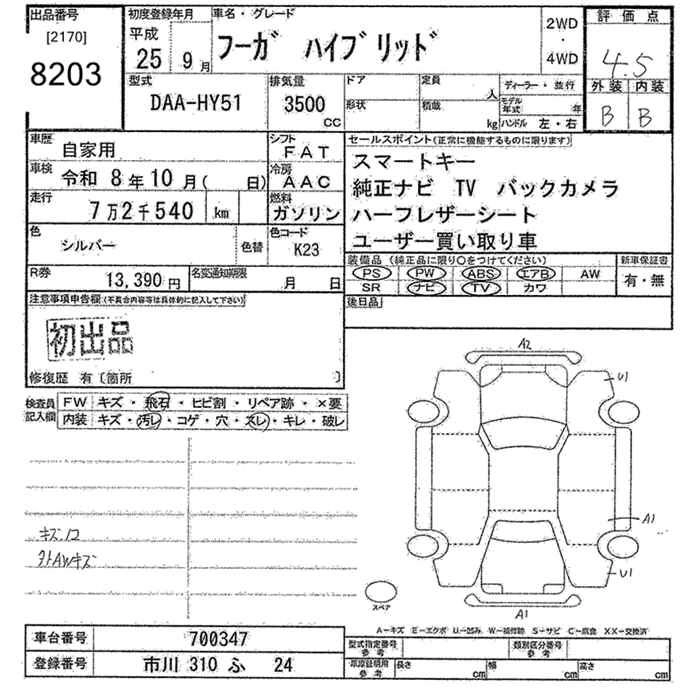 出品番号
[2170]
8203
初度登録年月
平成
25年 9月
車名・グレード
フーガ ハイブリッド
2WD
・
4WD
評価点
4.5
外装 内装
B B
型式
DAA-HY51
排気量
3500
CC
ドア
形状
定員
人
積載
kg
ディーラー・並行
モデル年式 年
ハンドル 左・右
車歴
自家用
シフト
FAT
車検
令和 8年10月( 日)
冷房
AAC
走行
7万2千540 km
燃料
ガソリン
色
シルバー
色替
色コード
K23
R券
13,390円
名変通知期限
月 日
セールスポイント(正常に機能するものに限ります)
スマートキー
純正ナビ TV バックカメラ
ハーフレザーシート
ユーザー買い取り車
装備品(純正品に限り○をつけてください)
PS PW ABS エアB AW
SR ナビ TV カワ
新車保証書
有・無
後日品
注意事項申告欄(不具合内容等は具体的に記入して下さい)
初出品
修復歴 有〔箇所 〕
検査員記入欄
FW キズ・飛石・ヒビ割・リペア跡・×要
内装 キズ・汚レ・コゲ・穴・スレ・キレ・破レ
AWキズ
A2
U1
A1
U1
A1
スペア
A-キズ E-エクボ U-凹み W-補修跡 S-サビ C-腐食 XX-交換済
車台番号 700347
登録番号 市川 310 ふ 24
型式指定番号 参考
類別区分番号 参考
車庫証明用 参考
長さ cm
幅 cm
高さ cm